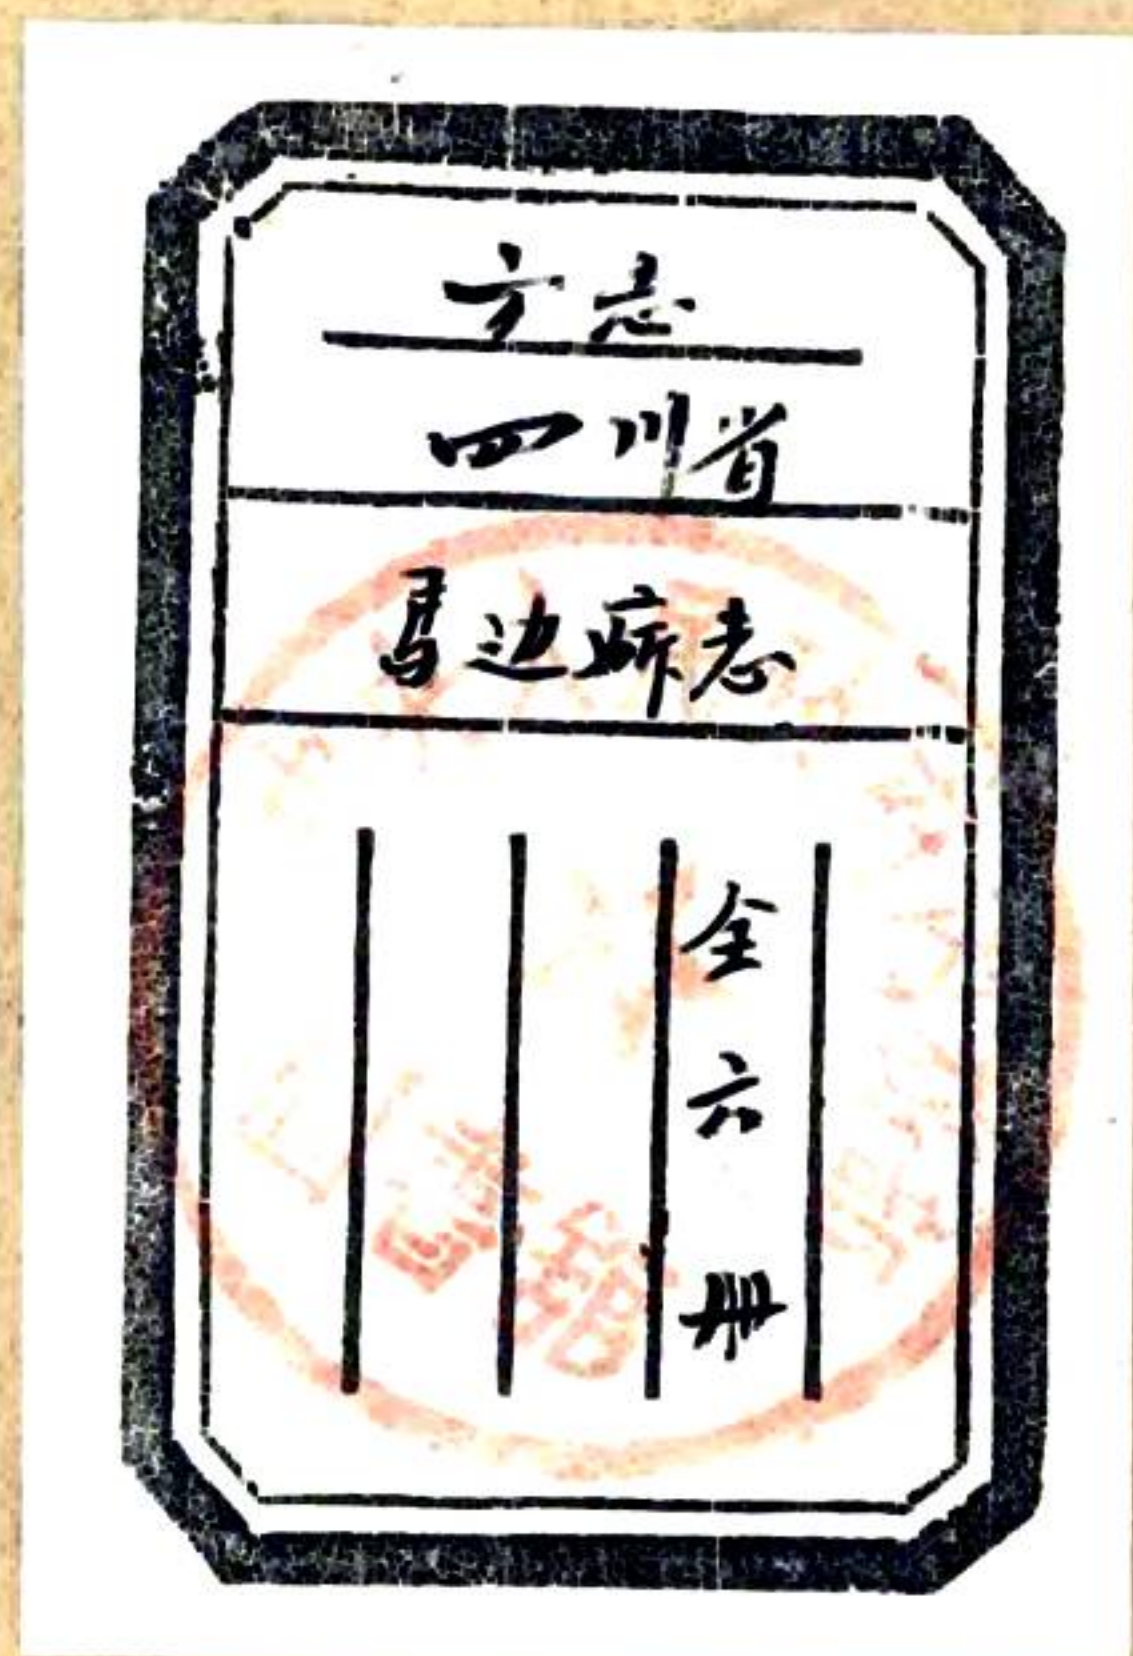 方志
四川省
马边厛志
全六册